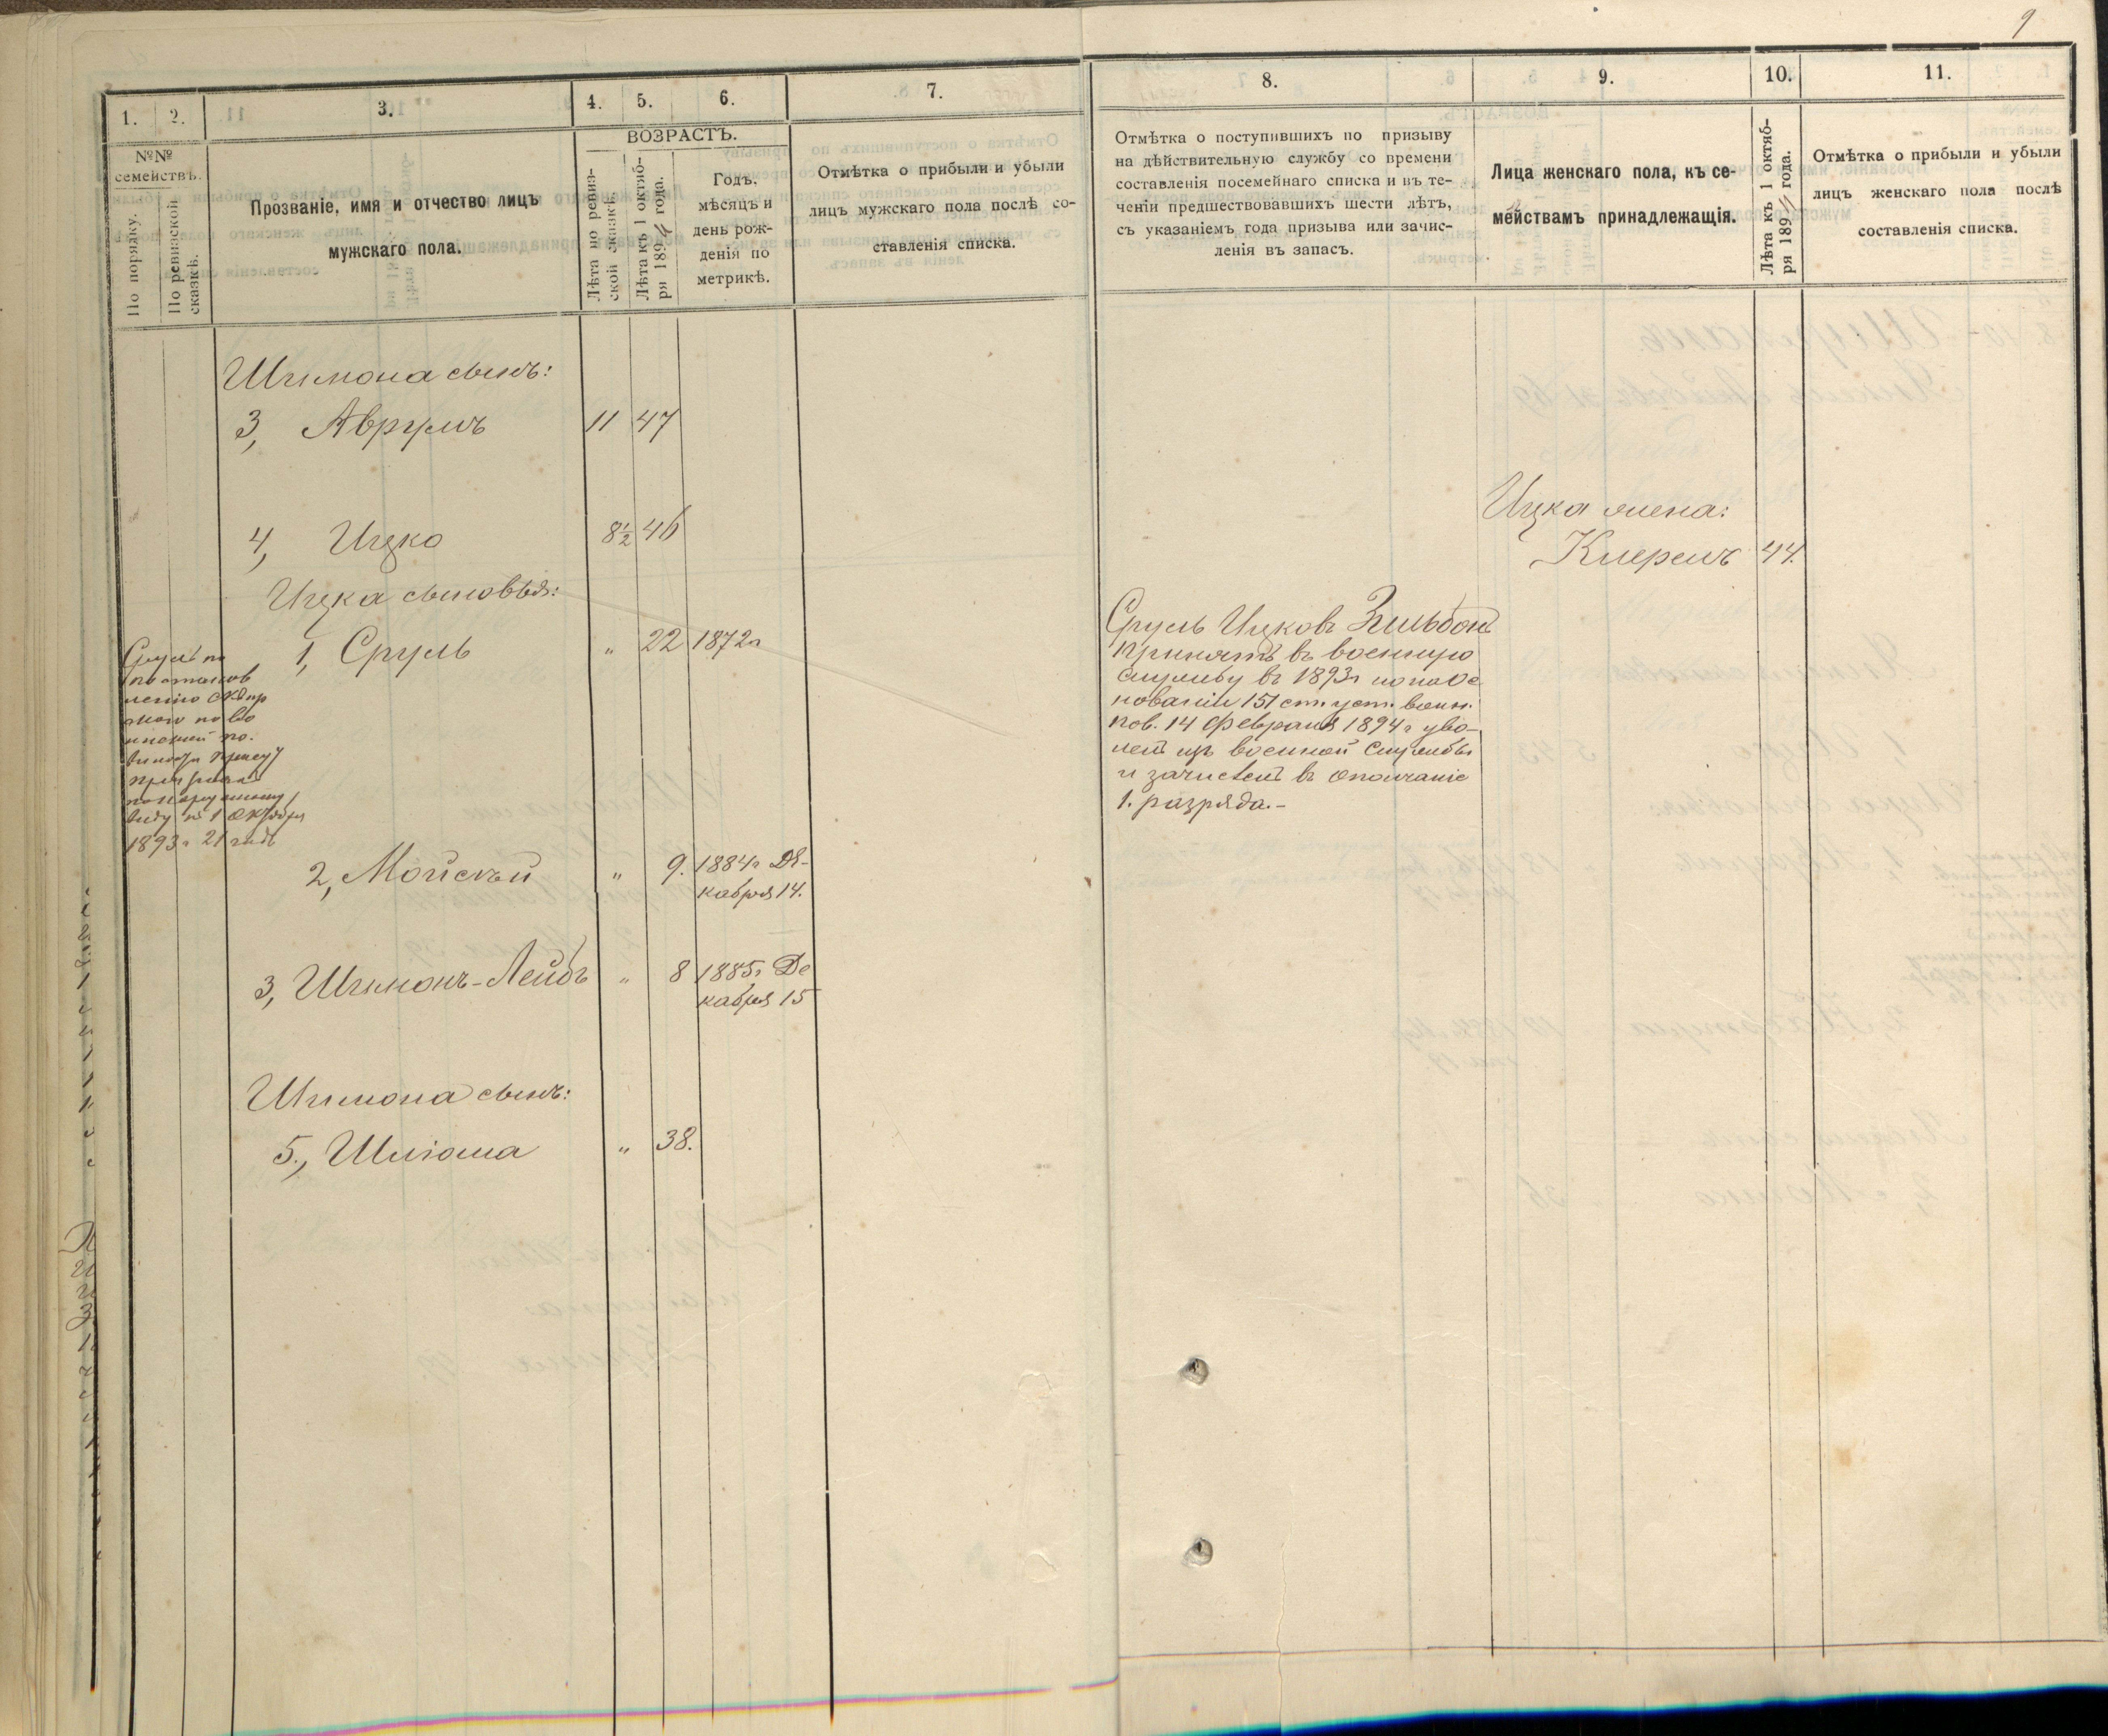 9
1.
2.
3.
4.
5.
6.
7.
8.
9.
10.
11.
№№
семействъ.
По порядку.
По ревизской
сказкѣ.
Прозваніе, имя и отчество лицъ
мужскаго пола.
ВОЗРАСТЪ.
Лѣта по ревиз-
ской сказкѣ.
Лѣта къ 1 октяб-
ря 1894 года.
Годъ,
мѣсяцъ и
день рож-
денія по
метрикѣ.
Отмѣтка о прибыли и убыли
лицъ мужскаго пола послѣ со-
ставленія списка.
Отмѣтка о поступившихъ по призыву
на дѣйствительную службу со времени
составленія посемейнаго списка и въ те-
ченіи предшествовавшихъ шести лѣтъ,
съ указаніемъ года призыва или зачис-
ленія въ запасъ.
Лица женскаго пола, къ се-
мействамъ принадлежащія.
Лѣта къ 1 октяб-
ря 1894 года.
Отмѣтка о прибыли и убыли
лицъ женскаго пола послѣ
составленія списка.
Шимона сынъ:
3, Аврумъ 11 47
4, Ицко 8½ 46
Ицка жена:
Кперелъ 44.
Ицка сыновья:
1, Сруль " 22 1872г
Сруль по
постанов
ленію
1893г 21 годъ
Сруль Ицковъ Зильбон
принятъ въ военную
службу въ 1893г но на Ос
нованіи 151 ст. уст. воин.
пов. 14 февраля 1894г уво-
лен изъ военной Службы
и зачислен въ ополчаніе
1. разряда.-
2, Мойсъй " 9. 1884г Де-
кабря 14.
3, Шимонъ-Лейбъ " 8 1885г Де
кабря 15
Шимона сынъ:
5., Шліома " 38.